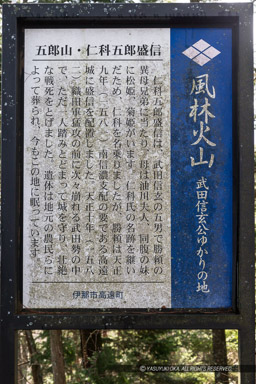 風林火山
武田信玄公ゆかりの地
五郎山・仁科五郎盛信
仁科五郎盛信は、武田信玄の五男で勝頼の
異母兄弟に当たり、母は油川夫人、同腹の妹
に松姫、菊姫がいます。仁科氏の名跡を継い
だため、仁科を名乗りましたが、勝頼は天正
九年(一五八一)南信濃支配の要である高遠
城に盛信を配置しました。天正十年(一五八
二)織田軍猛攻の前に次々崩れる武田勢の中
で、ただ一人踏みとどまって城を守り、壮絶
な戦死をとげました。遺体は地元の農民らに
よって葬られ、今もこの地に眠っています。
伊那市高遠町
©YASUYUKI OKA, ALL RIGHTS RESERVED.